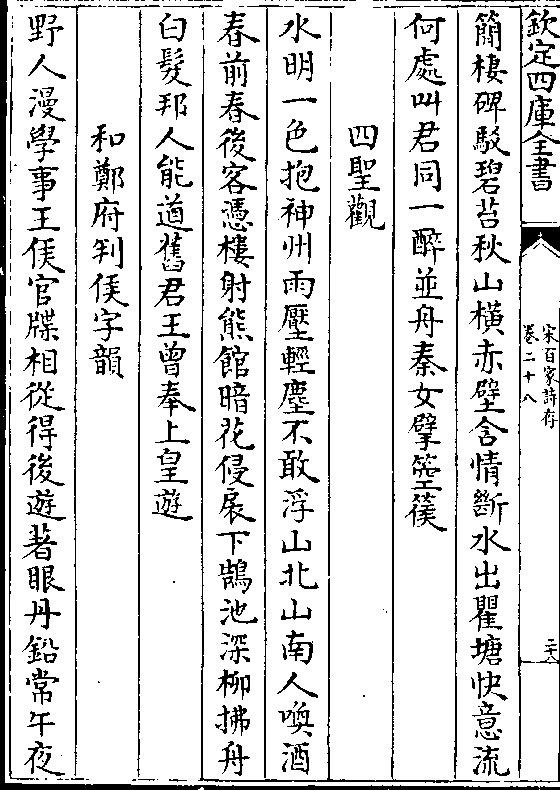 欽定四庫全書
宋百家詩存
卷二十八
二十八
簡棲碑駁碧苔秋山橫赤壁含情斷水出瞿塘快意流
何處叫君同一醉並舟秦女擘箜篌
四聖觀
水明一色抱神州雨壓輕塵不敢浮山北山南人喚酒
春前春後客憑樓射熊館暗花侵扆下鵠池深柳拂舟
白髮邦人能道舊君王曾奉上皇遊
和鄭府判侯字韻
野人漫學事王侯官牒相從得後遊著眼丹鉛常午夜